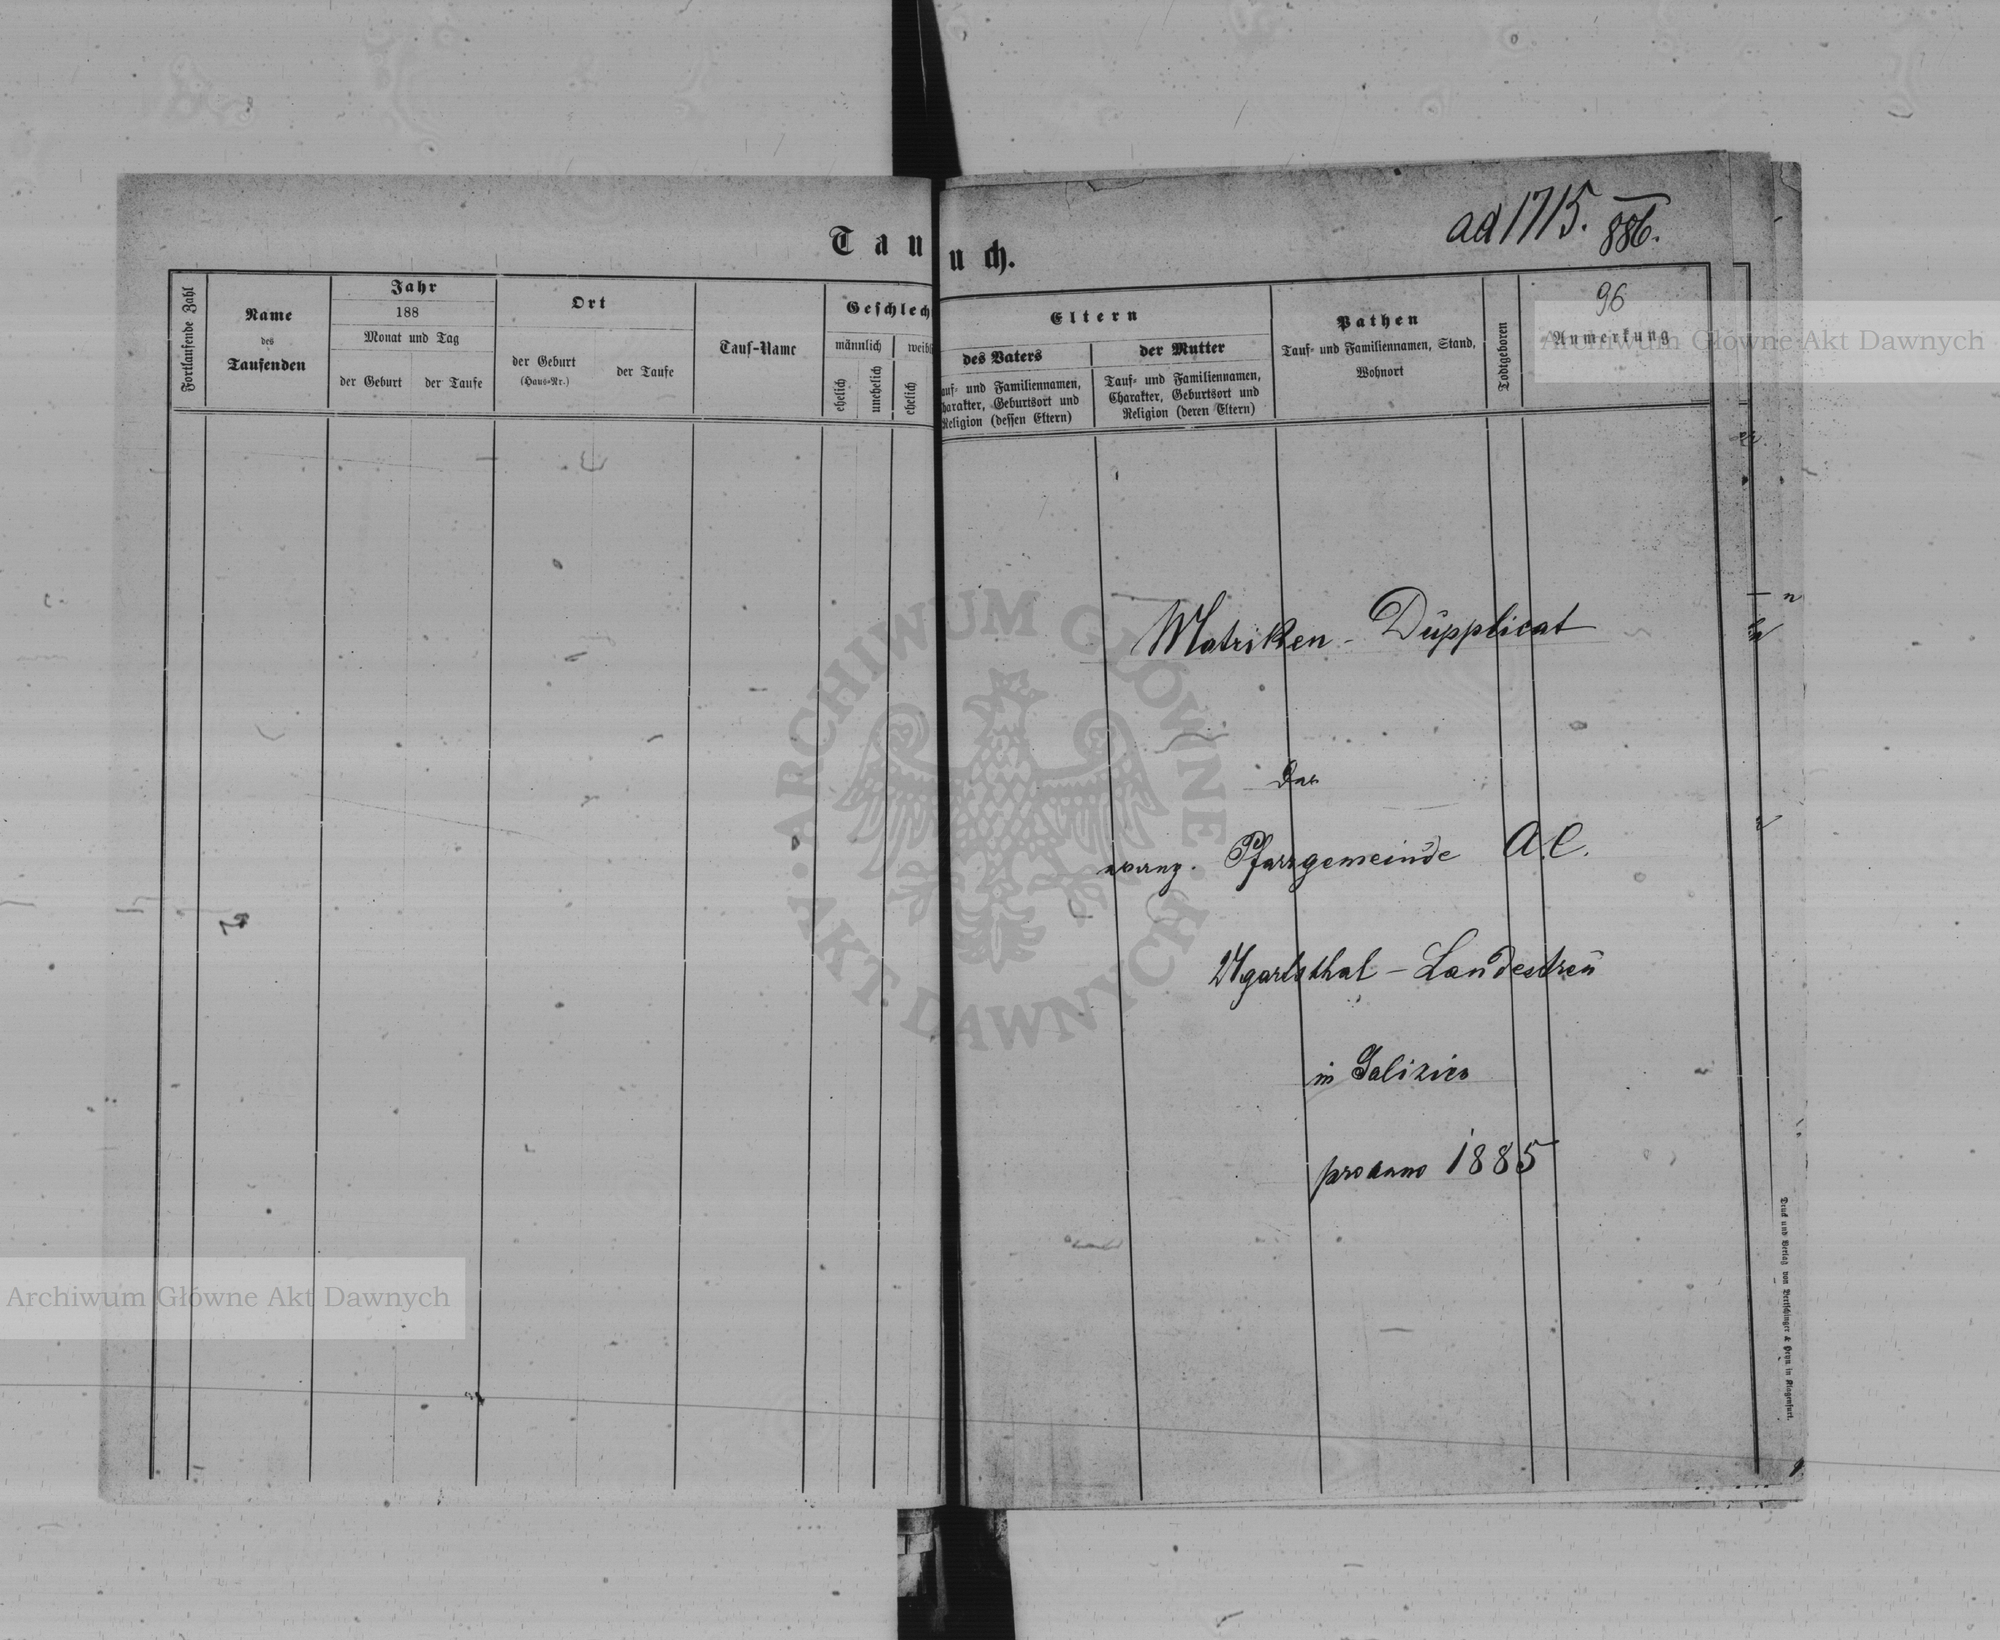 ad 1715. 886.
Tau uch.
96
Fortlaufende Zahl
Name
des
Taufenden
Jahr
188
Monat und Tag
der Geburt
der Taufe
Ort
der Geburt
(Haus=Nr.)
der Taufe
Tauf=Name
Geschlech
männlich
weibl
ehelich
unehelich
ehelich
Eltern
des Vaters
auf= und Familiennamen,
harakter, Geburtsort und
Religion (dessen Eltern)
der Mutter
Tauf= und Familiennamen,
Charakter, Geburtsort und
Religion (deren Eltern)
Pathen
Tauf= und Familiennamen, Stand,
Wohnort
Todtgeboren
Anmerkung
Archiwum Główne Akt Dawnych
Matriken - Dupplicat
der
evang. Pfarrgemeinde A.C.
Ugartsthal - Landestreu
in Galizien
pro anno 1885
ARCHIWUM GŁÓWNE · AKT DAWNYCH ·
Archiwum Główne Akt Dawnych
Druck und Verlag von Bertschinger & Heyn in Klagenfurt.